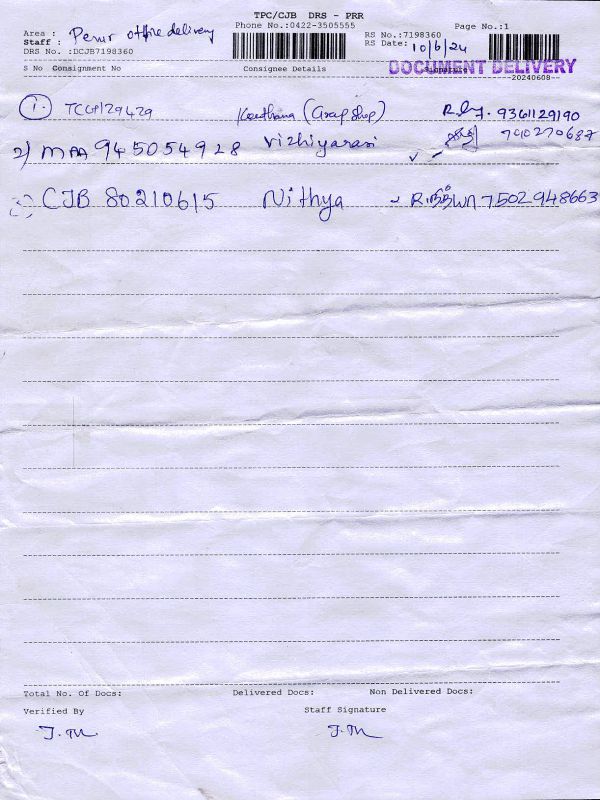 TPC/CJB DRS - PRR
Phone No.:0422-3505555 Page No.:1
Area : Perur office delivery
Staff :
RS No.:7198360
RS Date: 10/6/24
DRS No. :DCJB7198360
S No Consignment No Consignee Details Signature
DOCUMENT DELIVERY
--20240608--
1. 9361129190
2) MAA 945054928 Vizhiyarasi
CJB 80210615 Nithya R.நித்யா 7502948663
Total No. Of Docs: Delivered Docs: Non Delivered Docs:
Verified By Staff Signature